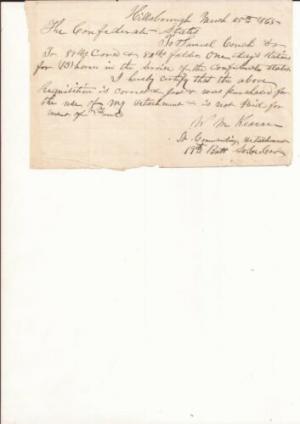 Hillsborough March 25th 1865
The Confederate States
To Samuel Couch Dr
To 81 lbs Corn & 80 lbs fodder One day's Rations
for horses in the service of the Confederate States
I hereby certify that the above
Requisition is correct & just & was purchased for
the use of my detachment & is not Paid for
want of Funds
W M
Lt Commanding detachment
19th Batt